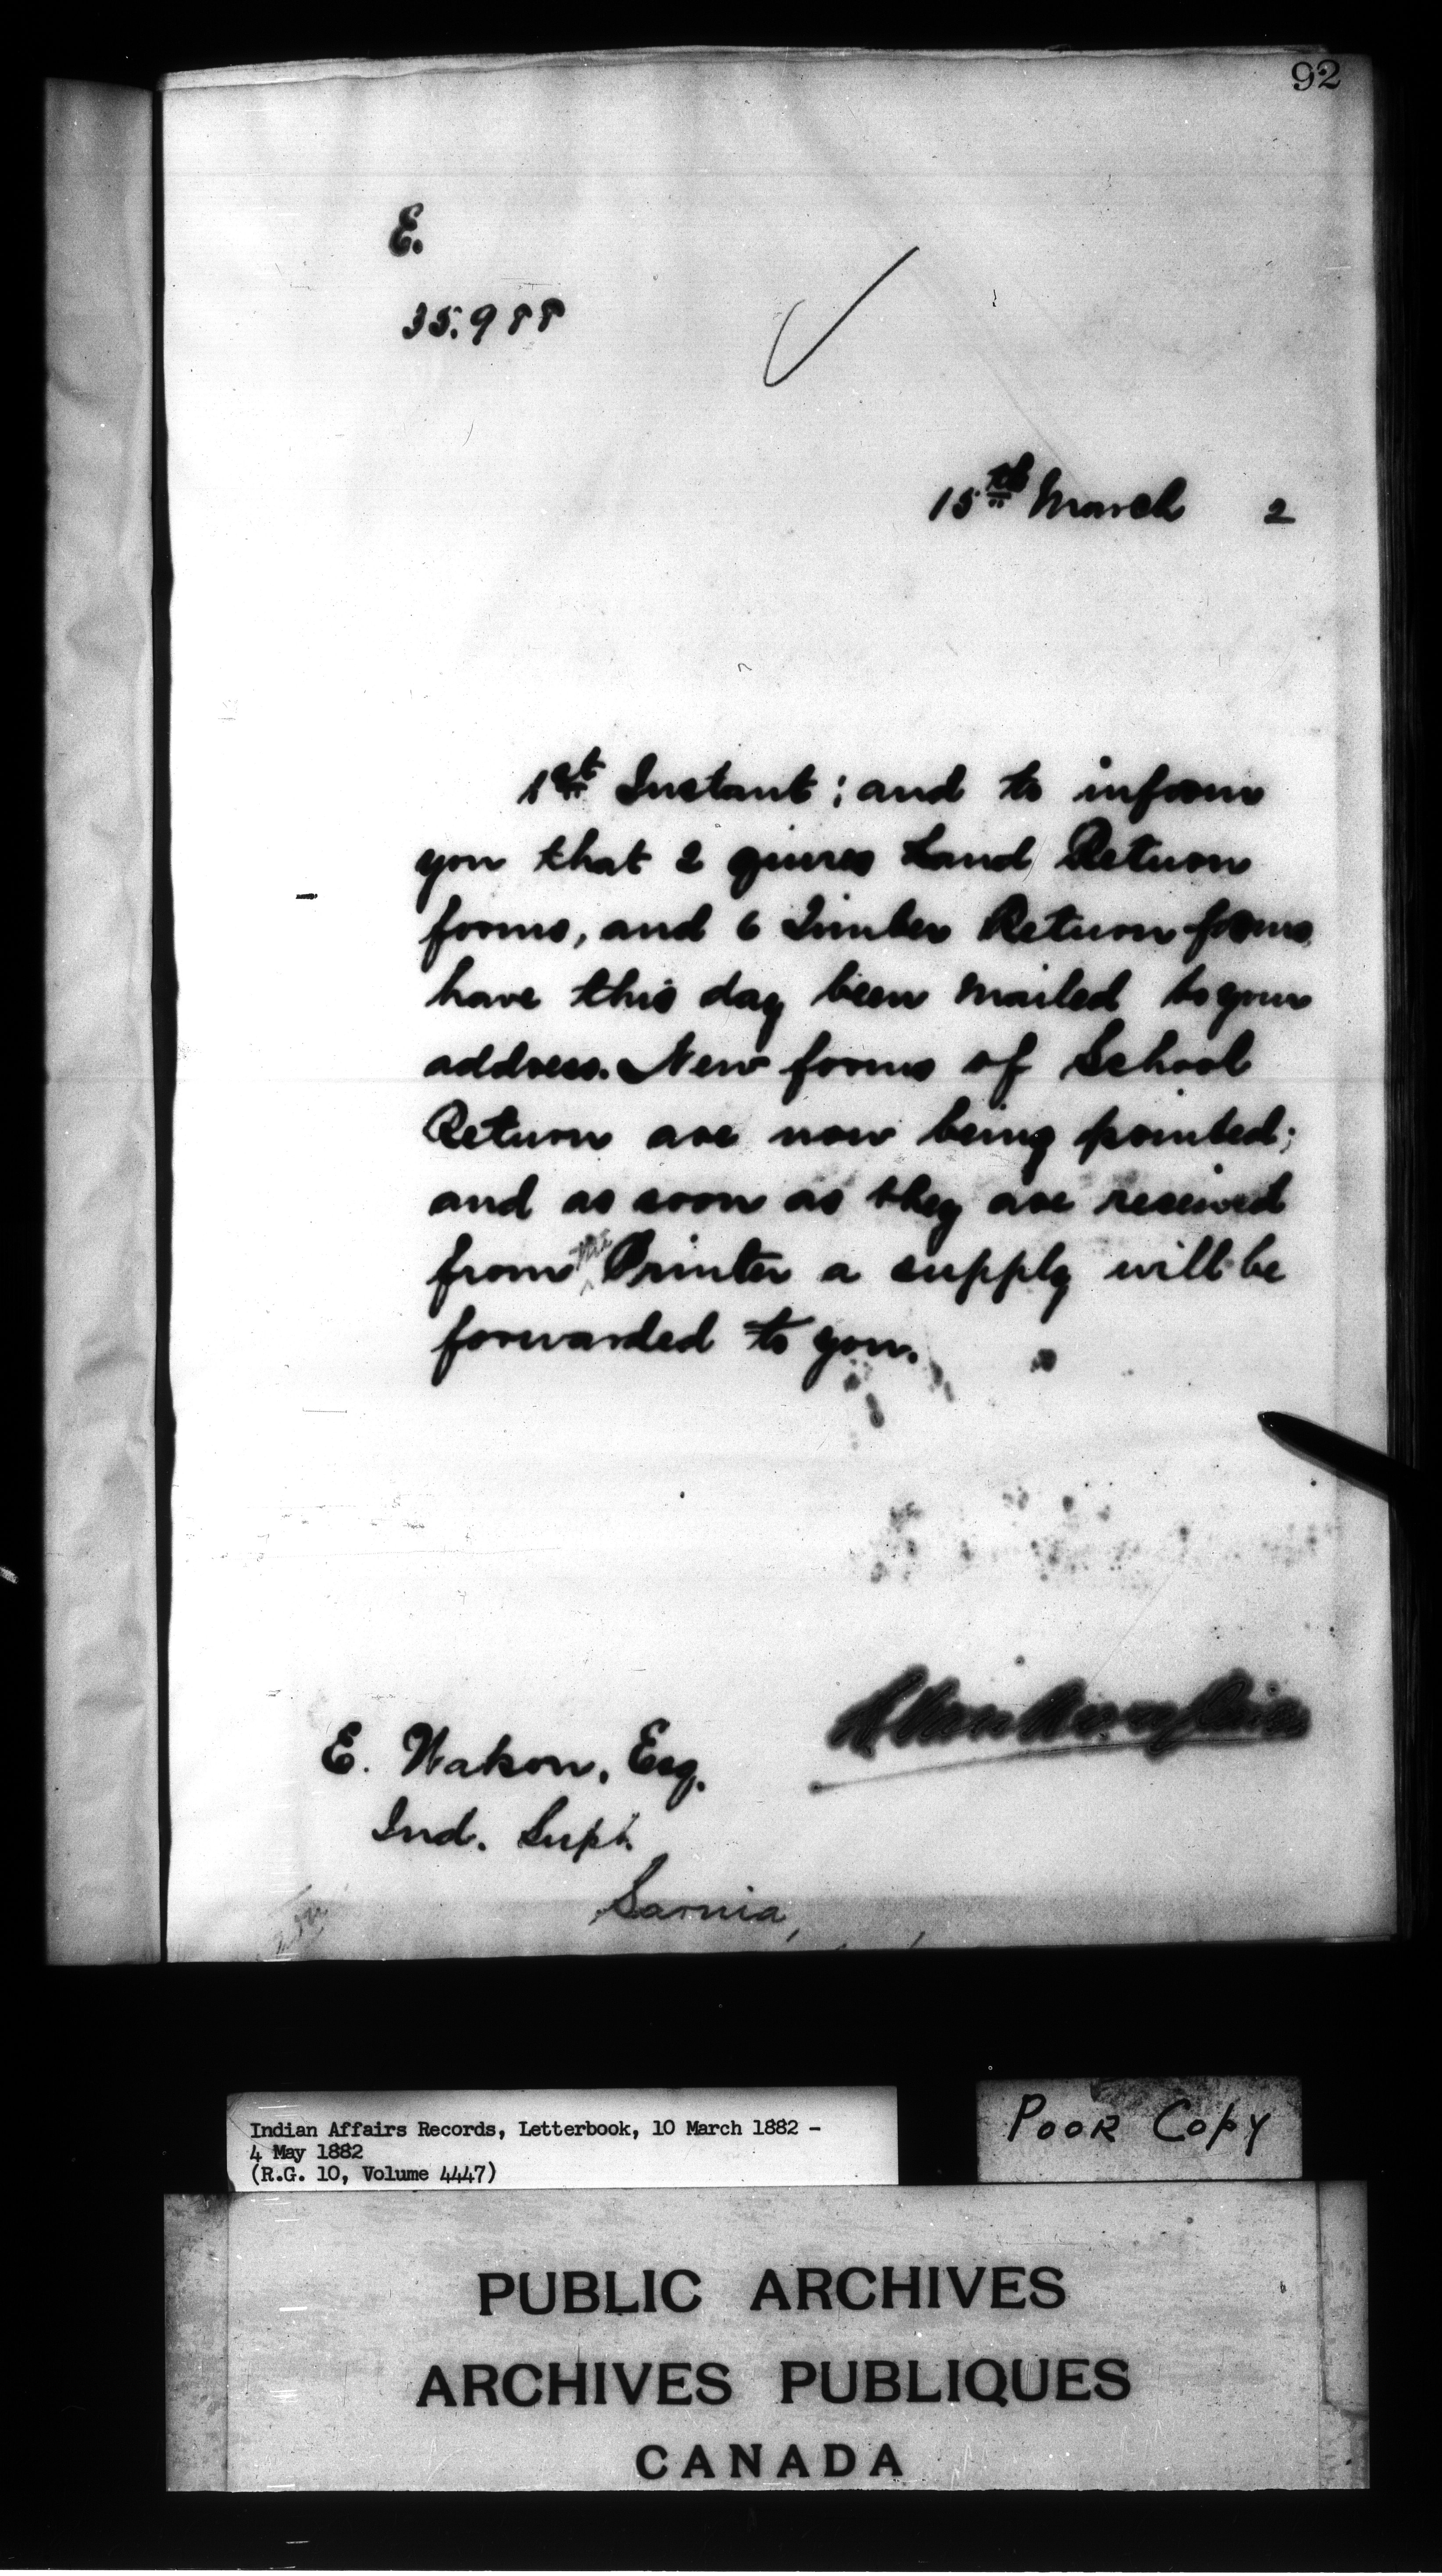 92
E.
35.988
15th March 2
1st Instant; and to inform
you that 2 quires Land Return
forms, and 6 Timber Return forms
have this day been mailed to your
address. New forms of School
Return are now being printed;
and as soon as they are received
from the Printer a supply will be
forwarded to you.
E. Watson, Esq.
Ind. Supt.
Sarnia,
Indian Affairs Records, Letterbook, 10 March 1882 -
4 May 1882
(R.G. 10, Volume 4447)
POOR COPY
PUBLIC ARCHIVES
ARCHIVES PUBLIQUES
CANADA